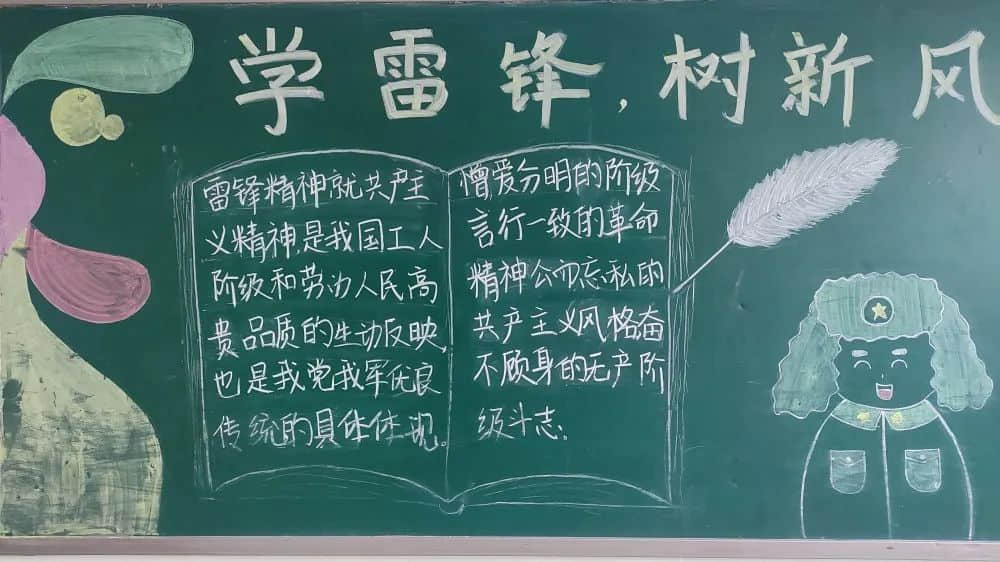 学雷锋,树新风
雷锋精神就共产主
义精神,是我国工人
阶级和劳动人民高
贵品质的生动反映,
也是我党我军优良
传统的具体体现。
憎爱分明的阶级
言行一致的革命
精神公而忘私的
共产主义风格奋
不顾身的无产阶
级斗志。